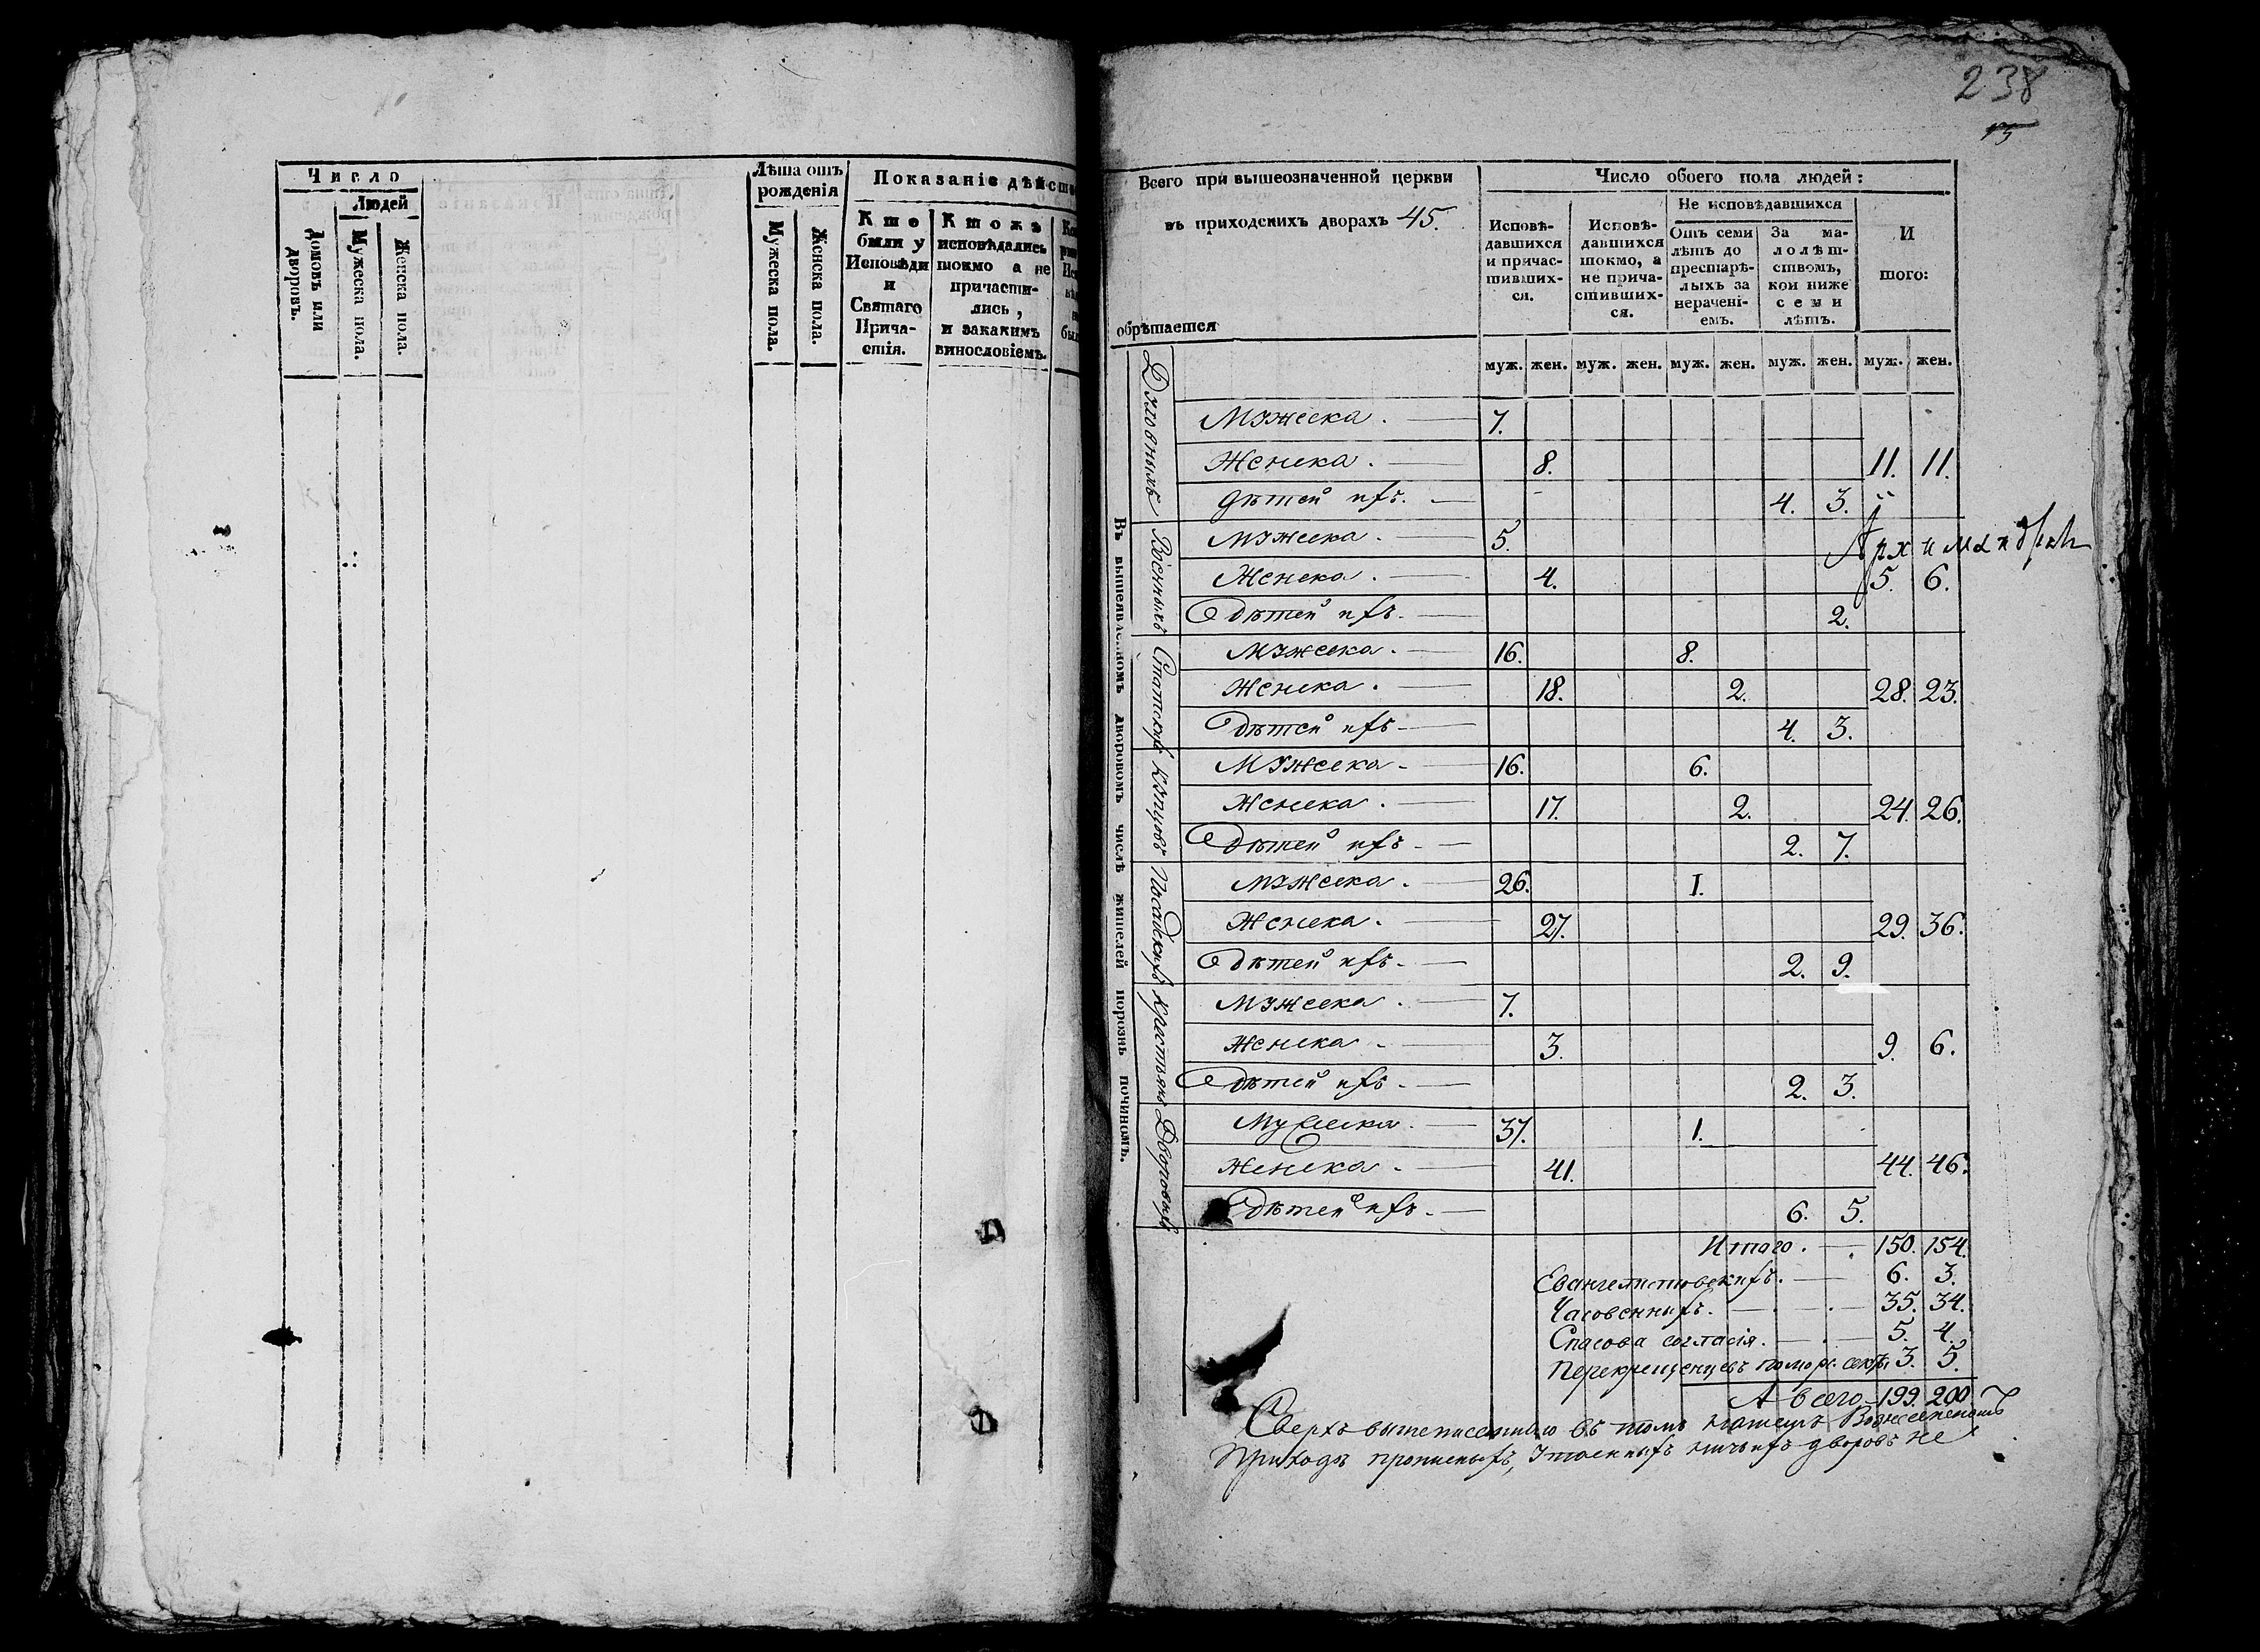 238
15
Число
Людей
Домовъ или дворовъ.
Мужеска пола.
Женска пола.
Лѣта отъ
рожденія
Мужеска пола.
Женска пола.
Показаніе дѣйст
Кто
были у
Исповѣди
и
Святаго
Прича-
стія.
Ктожъ
исповѣдались
токмо а не
причасти-
лись,
и закакимъ
винословіемъ.
Всего при вышеозначенной церкви
въ приходскихъ дворахъ 45.
обрѣтается
Число обоего пола людей:
Исповѣ-
давшихся
и причас-
тивших-
ся.
Исповѣ-
давшихся
токмо, а
не прича-
стивших-
ся.
Не исповѣдавшихся
Отъ семи
лѣтъ до
престарѣ-
лыхъ за
нерачені-
емъ.
За ма-
лолѣт-
ствомъ,
кои ниже
семи
лѣтъ.
И
того:
муж. жен. муж. жен. муж. жен. муж. жен. муж. жен.
Въ вышеявленномъ дворовомъ числѣ жителей порознь починомъ.
Духовныхъ
Мужеска. 7.
Женска. 8. 11. 11.
Дѣтей ихъ. 4. 3.
Военныхъ
Мужеска. 5.
Архимандритъ
Женска. 4. 5. 6.
Дѣтей ихъ. 2.
Статскихъ
Мужеска. 16. 8.
Женска. 18. 2. 28. 23.
Дѣтей ихъ 4. 3.
Купцовъ
Мужеска 16. 6.
Женска. 17. 2. 24. 26.
Дѣтей ихъ 2. 7.
Посадскихъ
Мужеска. 26. 1.
Женска. 27. 29. 36.
Дѣтей ихъ 2. 9.
Крестьянъ
Мужеска. 7.
Женска 3. 9. 6.
Дѣтей ихъ. 2. 3.
Дворовыхъ
Мужеска. 37. 1.
Женска. 41. 44. 46.
Дѣтей ихъ. 6. 5.
Итого. 150. 154.
Евангелистовскихъ. 6. 3.
Часовенныхъ. 35. 34.
Спасова согласія. 5. 4.
Перекрещенцевъ помор. секты 3. 5.
А всего 199. 200
Сверхъ вышеписеннаго въ томъ нашемъ Вознесенскомъ
Приходѣ прописныхъ, утаенныхъ ничьихъ дворовъ не